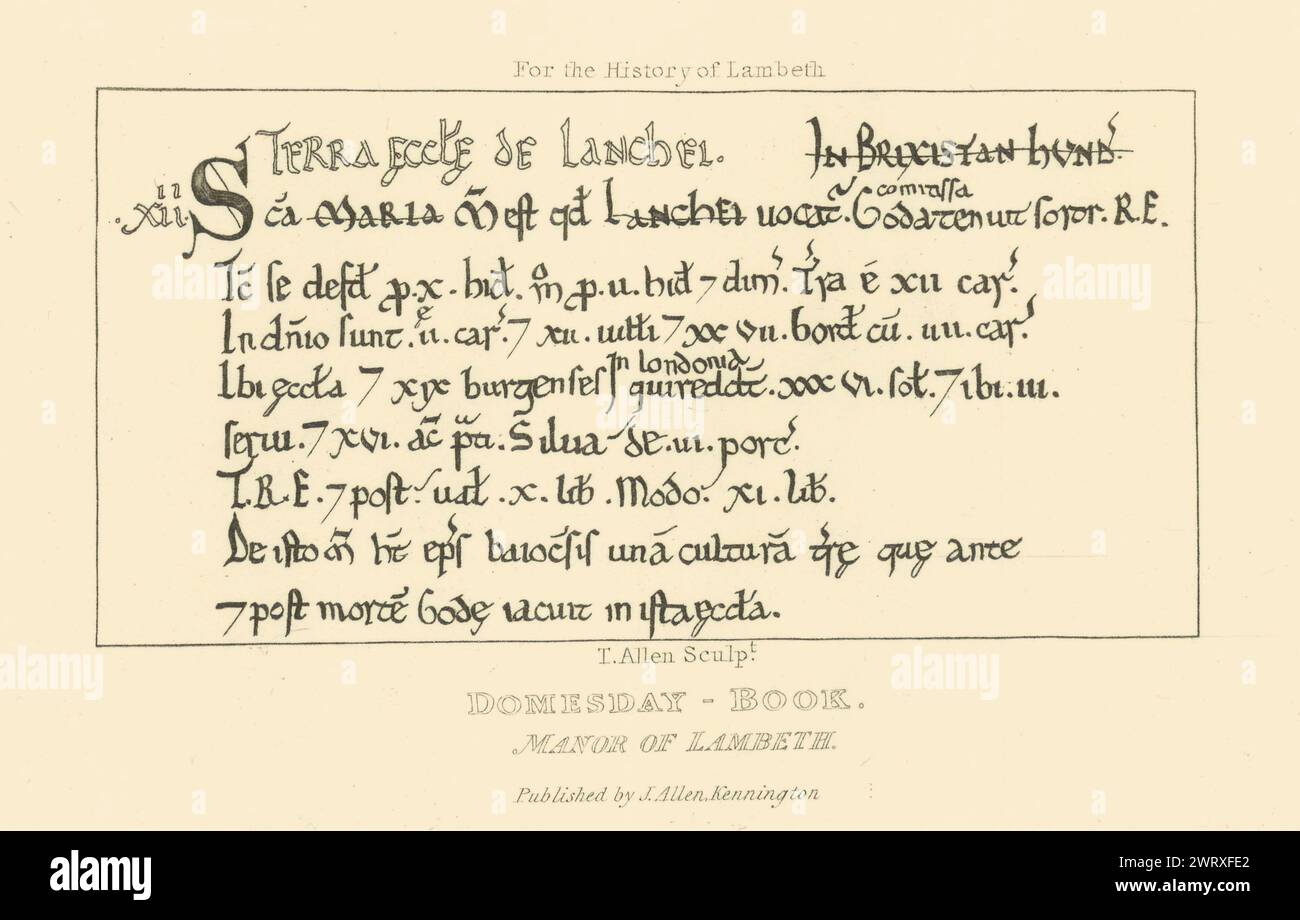 For the History of Lambeth
TERRA ęccłę de LANCHEI. IN BRIXISTAN HVND'.
.XIIII. SC̄A MARIA m̄ est qd̄ LANCHEI uocat̃. Goda comitissa tenuit soror. R.E.
Tc̄ se defd̄ p̱.x.hid̄. m° p̱.ii.hid̄ ⁊ dim̄. Tr̃a ē xii car̃.
In dn̄io sunt.ii.car̃.⁊ xii.uiłłi ⁊ xxvii.bord̄ cū.iiii.car̃.
Ibi ęccła ⁊ xix burgenses In londonia qui reddt̄.xxxvi.soł.⁊ ibi.iii.
serui.⁊ xvi.ac̄ p̃ti. Silua de.iii.porc̃.
T.R.E.⁊ post: uał.x.lib̄. Modo: xi.lib̄.
De isto m̄ ht̄ ep̃s baiocsis̄ unā culturā tr̃ę quę ante
⁊ post mortē Godę iacuit in ista ęccła.
T. Allen Sculp.t
DOMESDAY - BOOK.
MANOR OF LAMBETH.
Published by J. Allen, Kennington
alamy
alamy
alamy
alamy
alamy
alamy
alamy
Image ID: 2WRXFE2
www.alamy.com